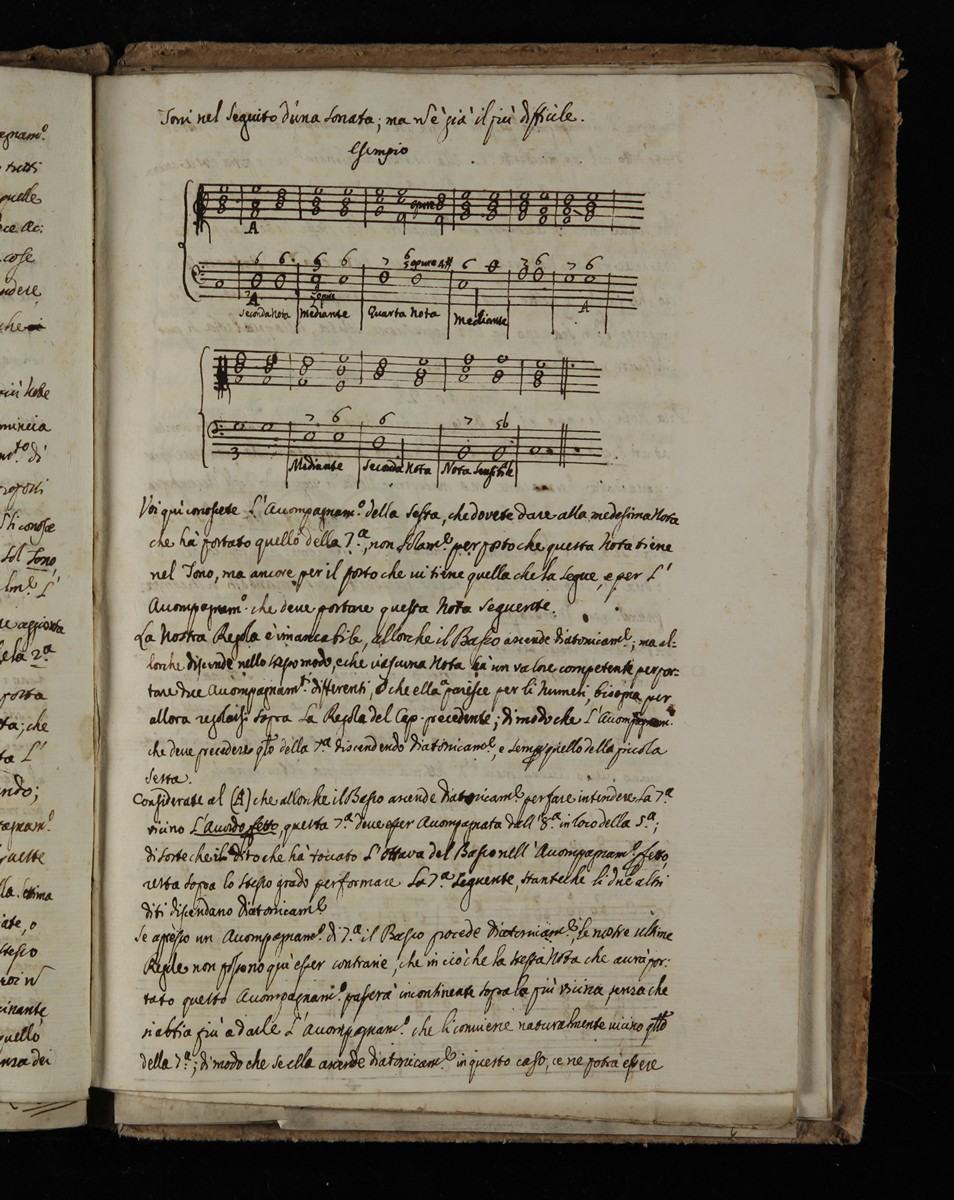 egnam.º
tutti
quelle
ece &c:
cose
ndere
che
più Note
mincia
di
proposti
conosce
sol Tono,
L'
aggiunta
la 2.ª
porta
ta; che
ta L'
ndo;
agnam.º
queste
la settima
iate, o
stesso
cinante
quello
nza dei
Toni nel seguito d'una sonata; ma n è già il più difficile.
Esempio
opure
A
6 6 6 6 7 6 5 opure 4# 6 7 6 7 6
A opure A
Seconda Nota Mediante Quarta Nota Mediante
7 6 6 7 5b
3
Mediante Seconda Nota Nota Sensibile
Voi qui conoscete L'Accompagnam.º della sesta, che dovete dare alla medesima Nota
che hà portato quello della 7.ª, non solam.e per posto che questa Nota tiene
nel Tono, ma ancore per il posto che vi tiene quella che la segue, e per L'
Accompagnam.º che deve portare questa Nota seguente.
La Nostra Regola è immancabile, allorche il Basso ascende diatonicam.e; ma al-
lorche discende nello stesso modo, e che ciascuna Nota hà un valore competente per por-
tare due Accompagnam.ti differenti, ò che ella parisce per li Numeri, bisogna per
allora regolarsi sopra La Regola del Cap. precedente; di modo che L'Accompagnam.
che deve precedere q.to della 7.ª discendendo diatonicam.e, e sempre quello della piccola
sesta.
Considerate al (A) che allorche il Basso ascende diatonicam.e per fare intendere la 7.ª
vicino L'Accordo setto, questa 7.ª deve esser Accompagnata dall' 8.ª in loco della 5.ª;
di sorte che il dito che hà toccato L'ottava del Basso nell'Accompagnam.º setto,
resta sopra lo stesso grado per formare La 7.ª seguente, stanteche li due altri
diti discendano diatonicam.e
Se appresso un Accompagnam.º di 7.ª il Basso procede diatonicam.e, le nostre ultime
Regole non possono qui esser contrarie, che in ciò che la stessa Nota che avrà por-
tato questo Accompagnam.º passerà incontinente sopra la più vicina senza che
si abbia più a darle L'Accompagnam.º che li conviene naturalmente vicino q.to
della 7.ª; di modo che se ella ascende diatonicam.e in questo caso, ce ne potrà essere